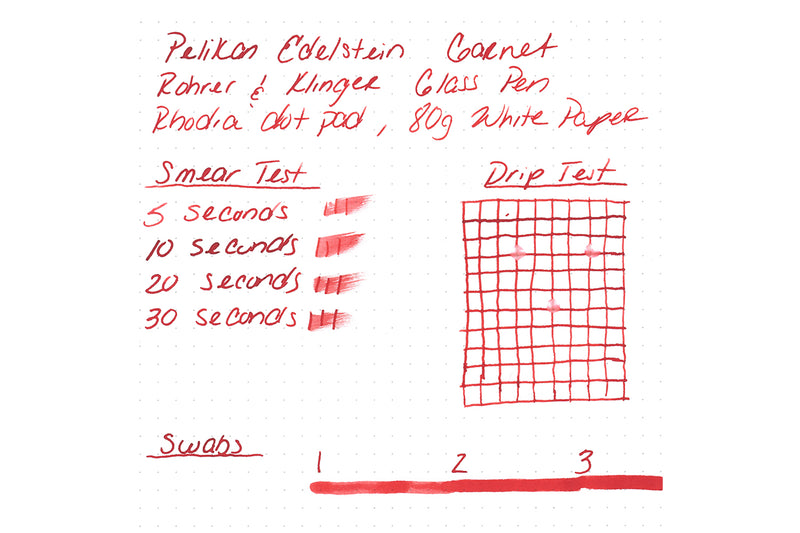 Pelikan Edelstein Garnet
Rohrer & Klinger Glass Pen
Rhodia dot pad, 80g White Paper
Smear Test
5 seconds
10 seconds
20 seconds
30 seconds
Drip Test
Swabs
1 2 3